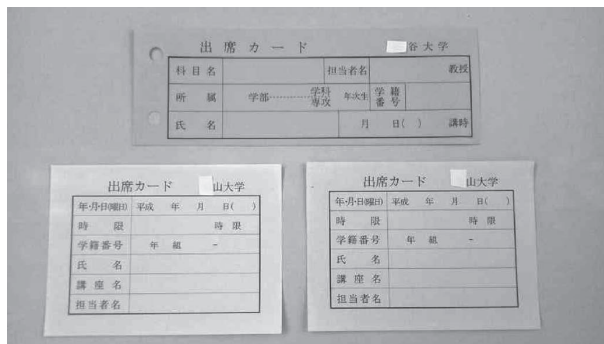 出席カード 谷大学
科目名 担当者名 教授
所属 学部 学科専攻 年次生 学籍番号
氏名 月 日( ) 講時
出席カード 山大学
年・月・日(曜日) 平成 年 月 日( )
時限 時限
学籍番号 年 組 -
氏名
講座名
担当者名
出席カード 山大学
年・月・日(曜日) 平成 年 月 日( )
時限 時限
学籍番号 年 組 -
氏名
講座名
担当者名